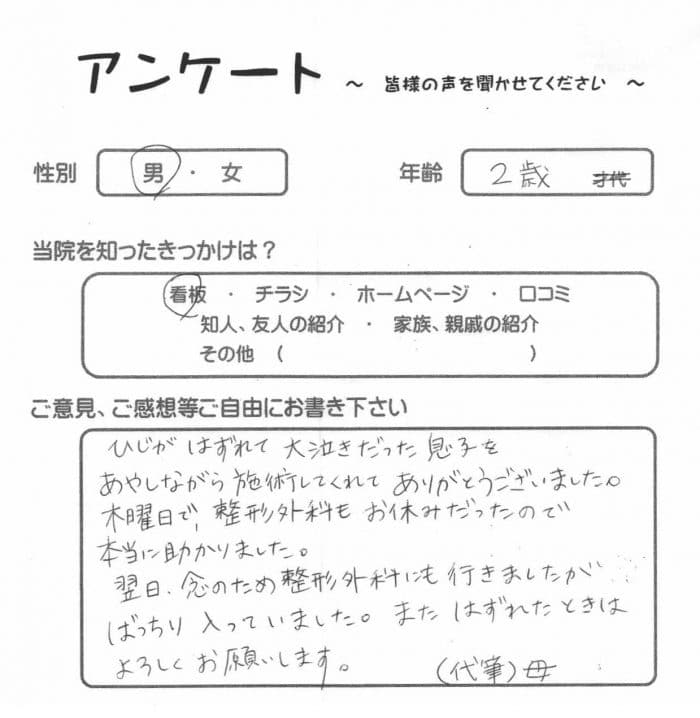 アンケート ～ 皆様の声を聞かせてください ～
性別 男 ・ 女 年齢 2歳 才代
当院を知ったきっかけは？
看板 ・ チラシ ・ ホームページ ・ 口コミ
知人、友人の紹介 ・ 家族、親戚の紹介
その他 （ ）
ご意見、ご感想等ご自由にお書き下さい
ひじが はずれて 大泣きだった 息子を
あやしながら 施術してくれて ありがとうございました。
木曜日で、整形外科も お休みだったので
本当に助かりました。
翌日、念のため 整形外科にも 行きましたが
ばっちり 入っていました。また はずれたときは
よろしく お願いします。 (代筆)母